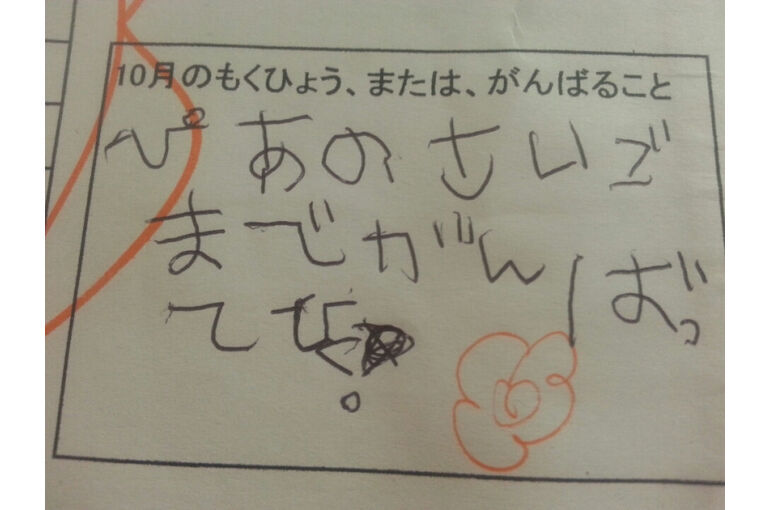 10月のもくひょう、または、がんばること
ぴあのさいご
までがんばっ
てひく。